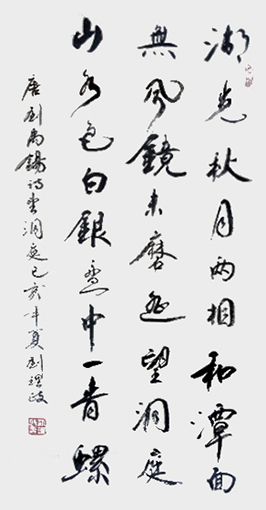 湖光秋月两相和潭面
無风鏡未磨遥望洞庭
山水色白銀盘中一青螺
唐刘禹锡诗望洞庭己亥年夏刘理政